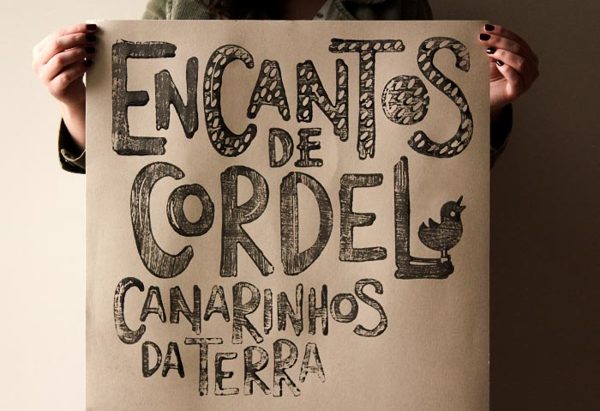 ENCANTOS
DE
CORDEL
CANARINHOS
DA TERRA